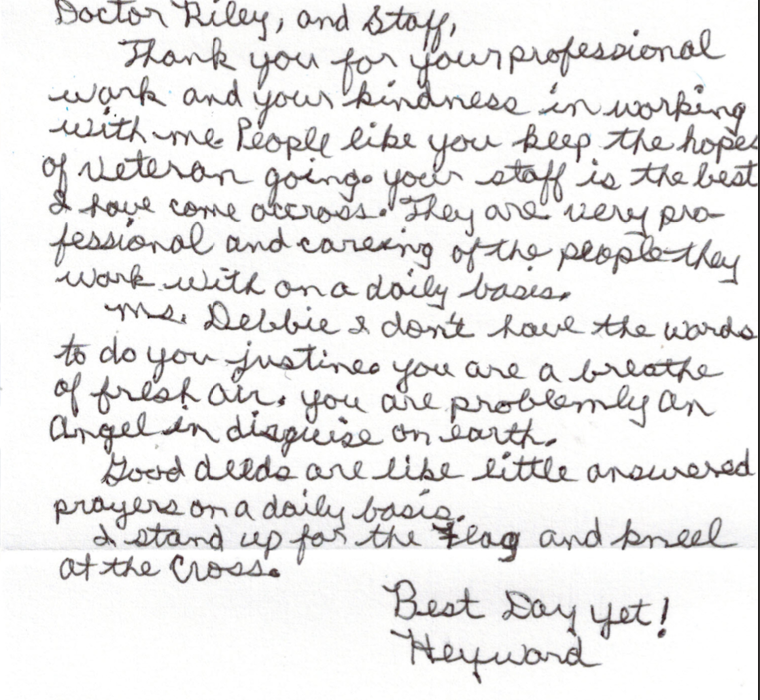 Doctor Riley, and Staff,
Thank you for your professional
work and your kindness in working
with me. People like you keep the hopes
of veteran going. your staff is the best
I have come accross. They are very pro-
fessional and careing of the people they
work with on a daily basis.
Ms. Debbie I don't have the words
to do you justine. you are a breathe
of fresh air. you are problemly an
Angel in disguise on earth.
Good deeds are like little answered
prayers on a daily basis.
I stand up for the Flag and kneel
at the Cross.
Best Day yet!
Heyward